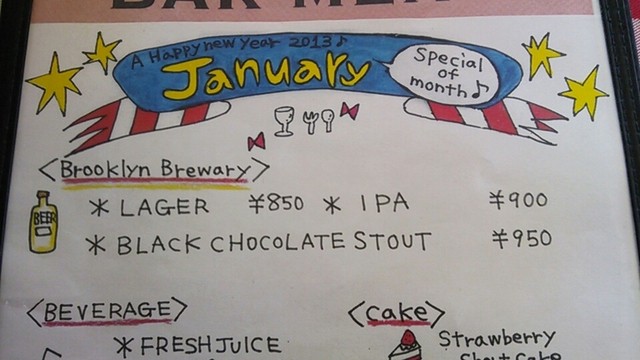 A Happy new year 2013♪
January
Special
of
month♪
<Brooklyn Brewary>
BEER
* LAGER ¥850 * IPA ¥900
* BLACK CHOCOLATE STOUT ¥950
<BEVERAGE>
<cake>
* FRESH JUICE
Strawberry